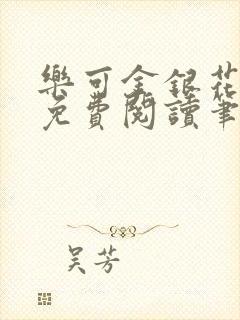 樂可金銀花
免費閱讀筆
吴芳